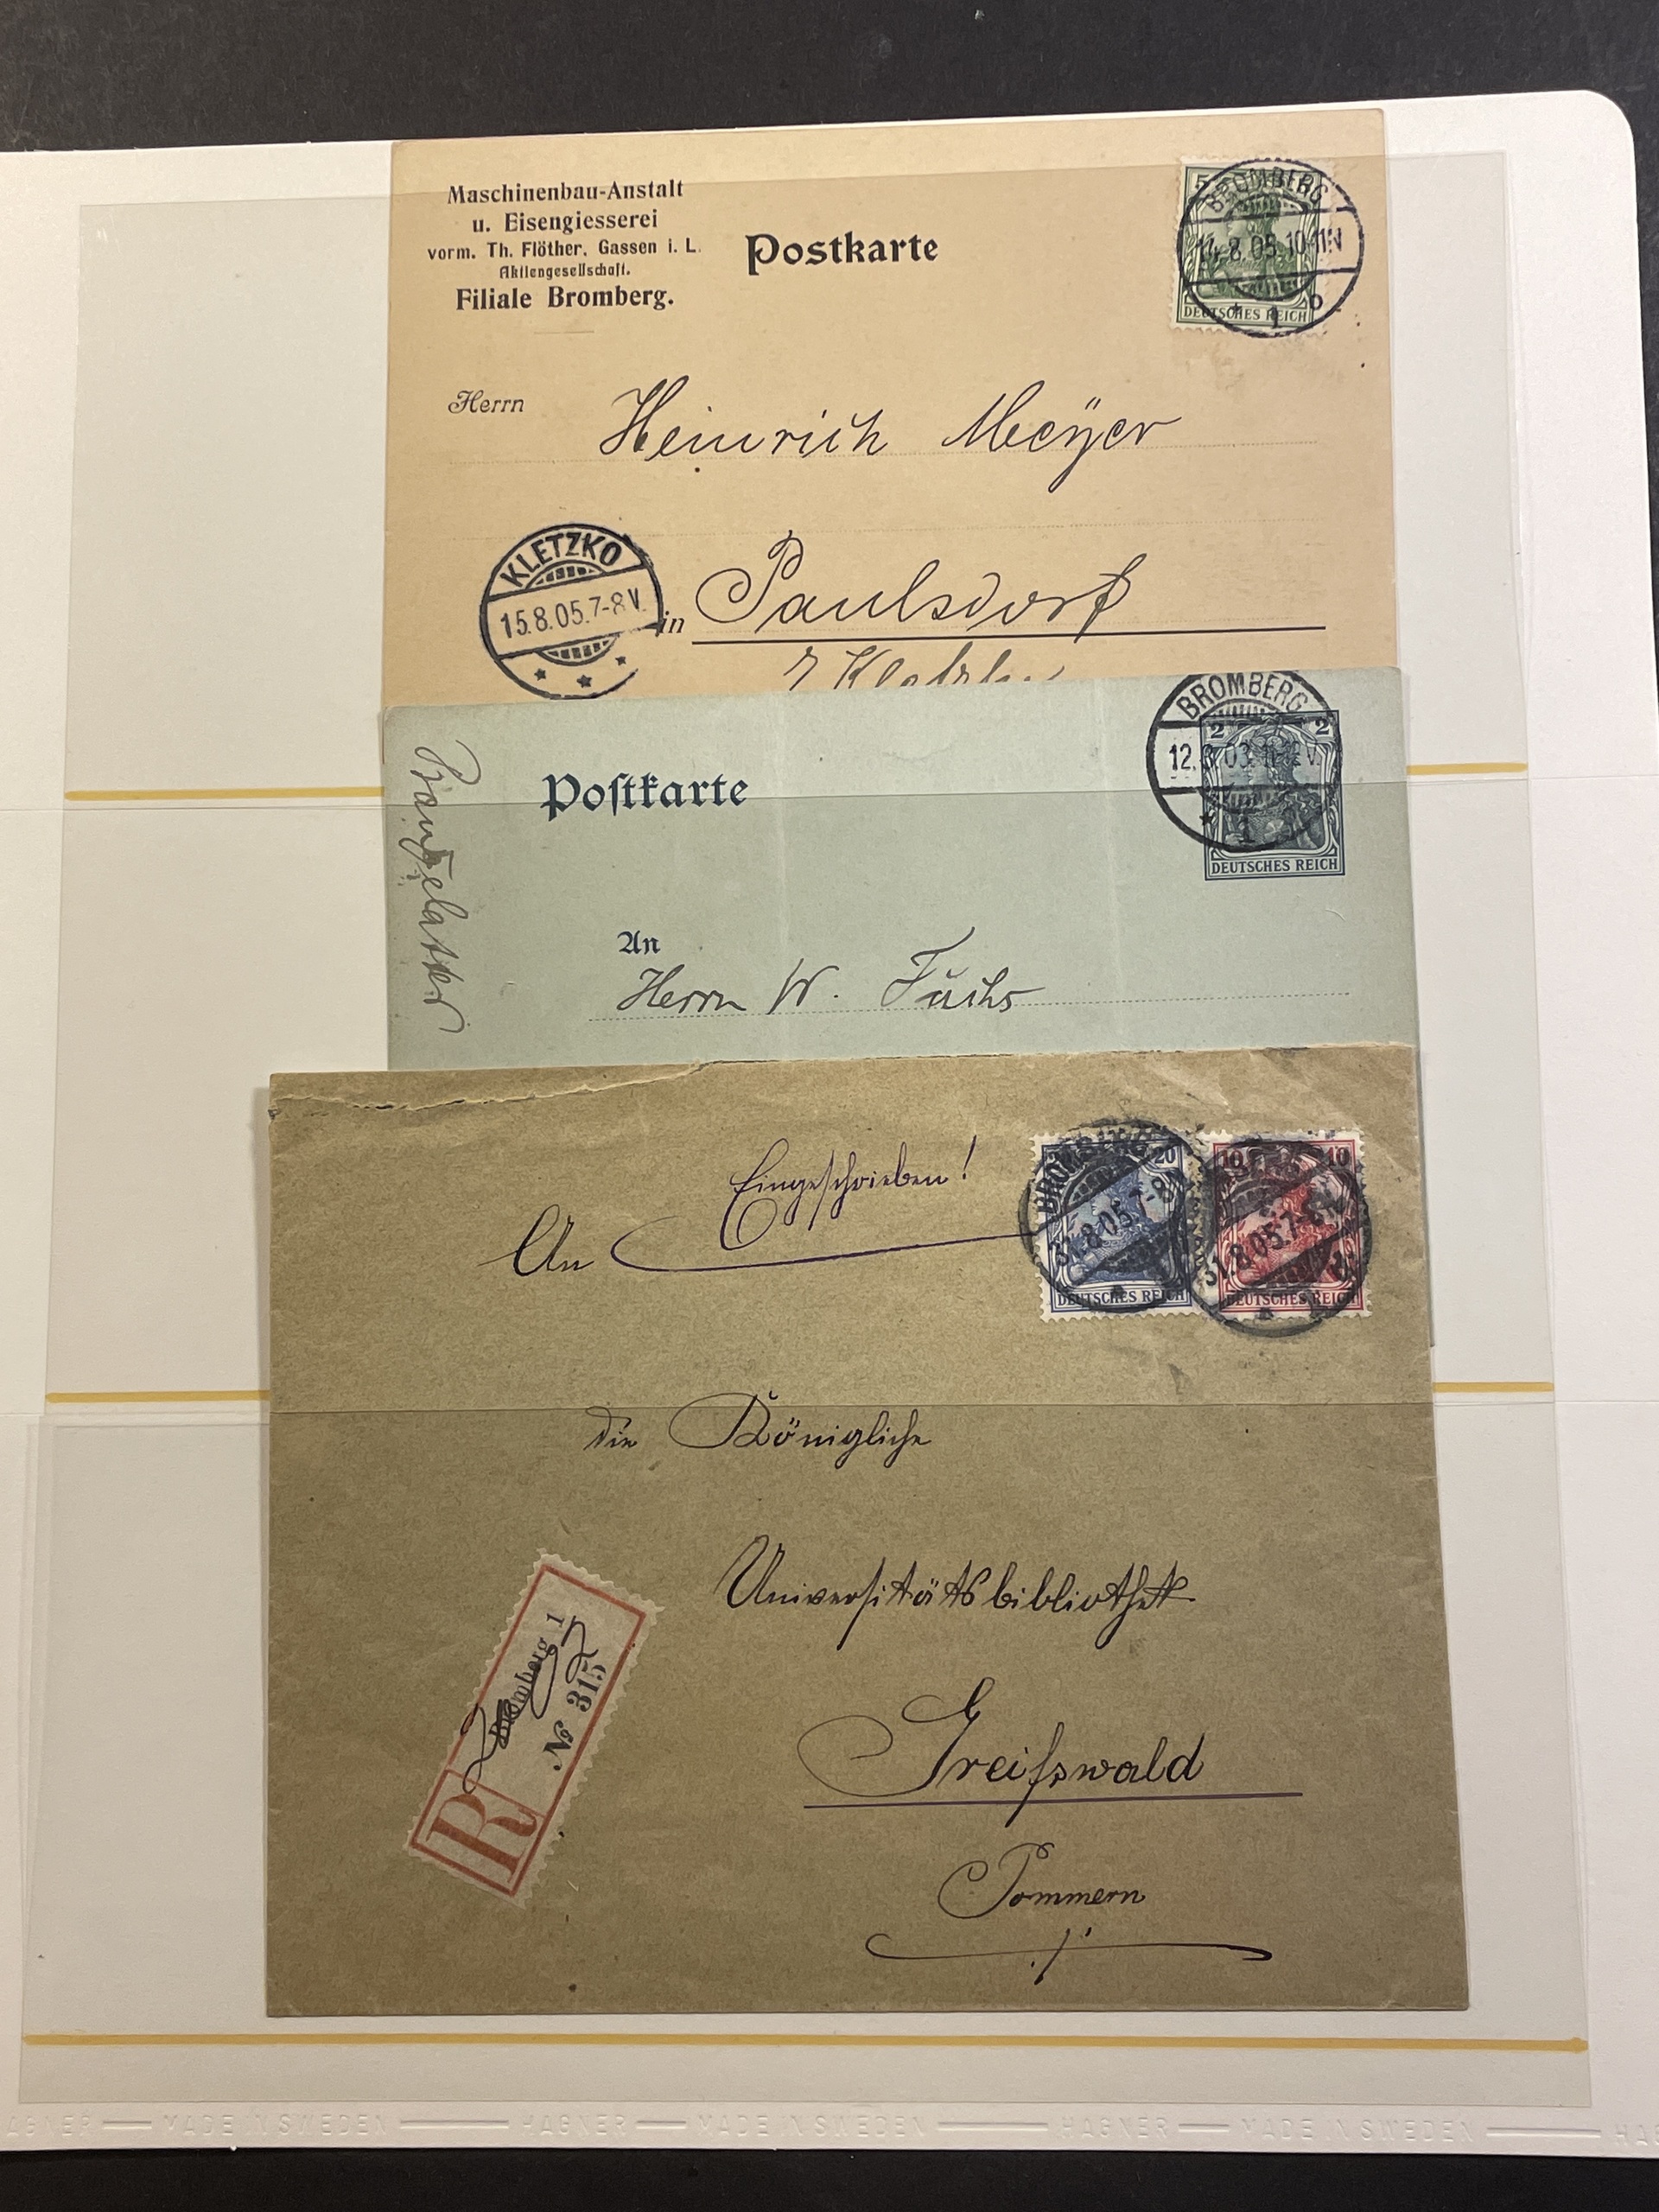 Maschinenbau-Anstalt
u. Eisengiesserei
vorm. Th. Flöther, Gassen i. L.
Aktiengesellschaft.
Filiale Bromberg.
Postkarte
5
BROMBERG
14.8.05.10-11N
* 1 b
DEUTSCHES REICH
Herrn Heinrich Meÿer
KLETZKO
15.8.05.7-8V.
in Paulsdorf
Postkarte
BROMBERG
2 2
12. 03.
* 1
DEUTSCHES REICH
An
Herrn W. Fŭchs
Eingeschrieben!
An
BROMBERG
20
31.8.05.7-8
DEUTSCHES REICH
10 10
31.8.05.7-8
DEUTSCHES REICH
die Königliche
Universitätsbibliothek
Bromberg 1
№ 315
R
Greifswald
Pommern
HAGNER — MADE IN SWEDEN — HAGNER — MADE IN SWEDEN — HAGNER — MADE IN SWEDEN — HAG